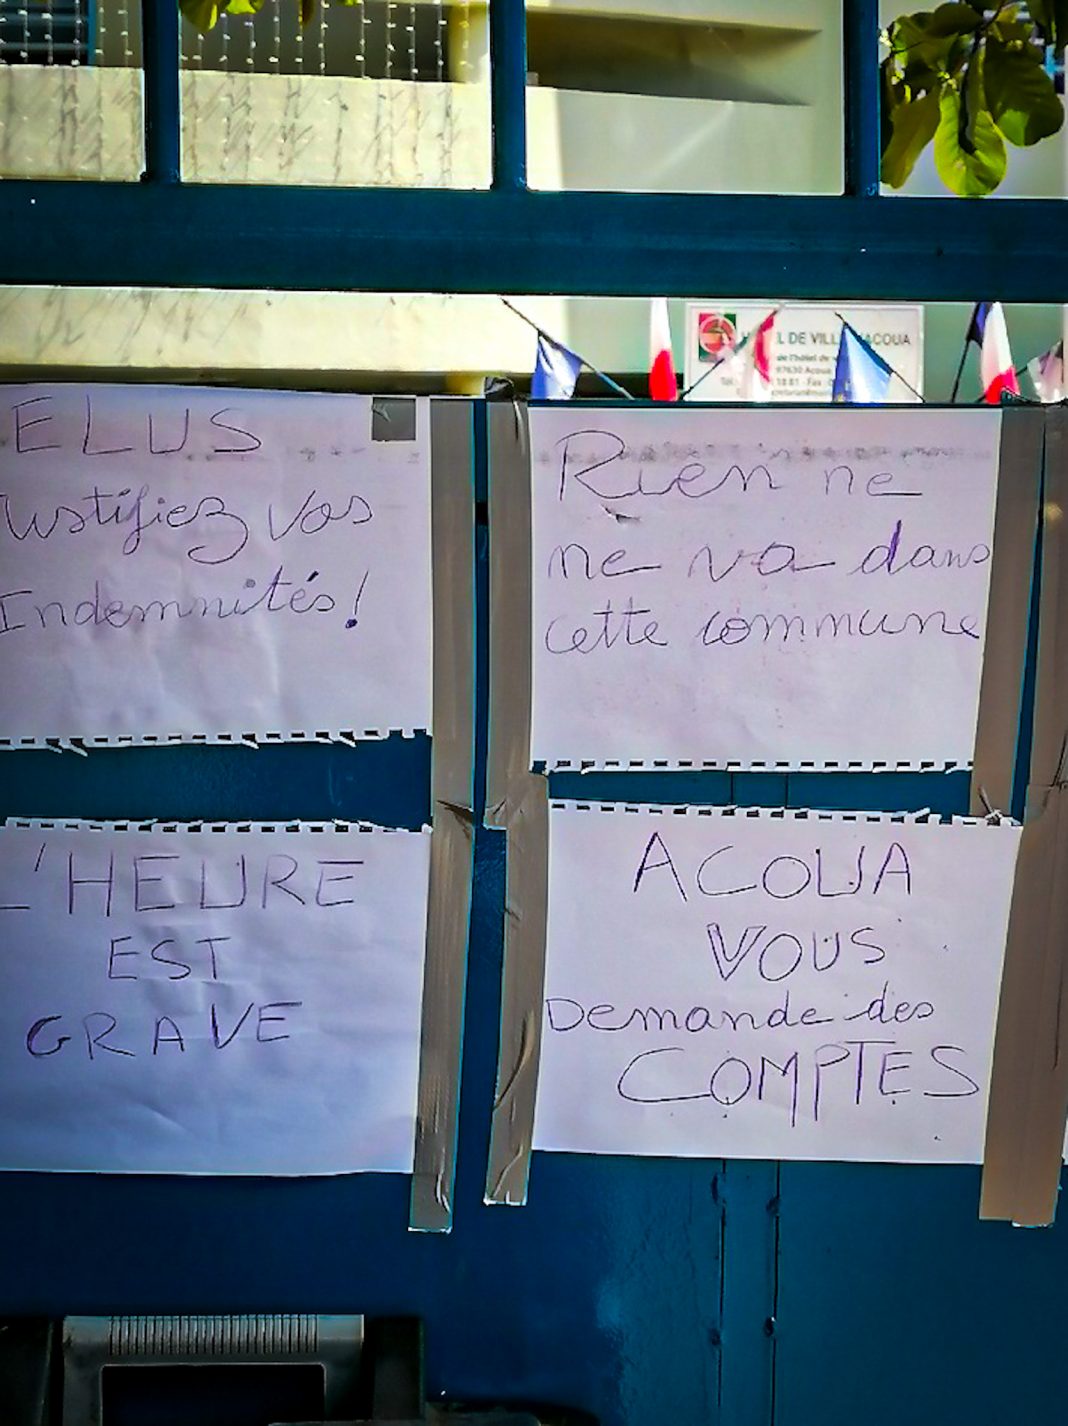 L DE VILL ACOUA
de l'hôtel de v
97630 Acoua
Tél. 18 81 - Fax
ELUS
Justifiez vos
Indemnités!
Rien ne
ne va dans
cette commune
L'HEURE
EST
GRAVE
ACOUA
VOUS
Demande des
COMPTES